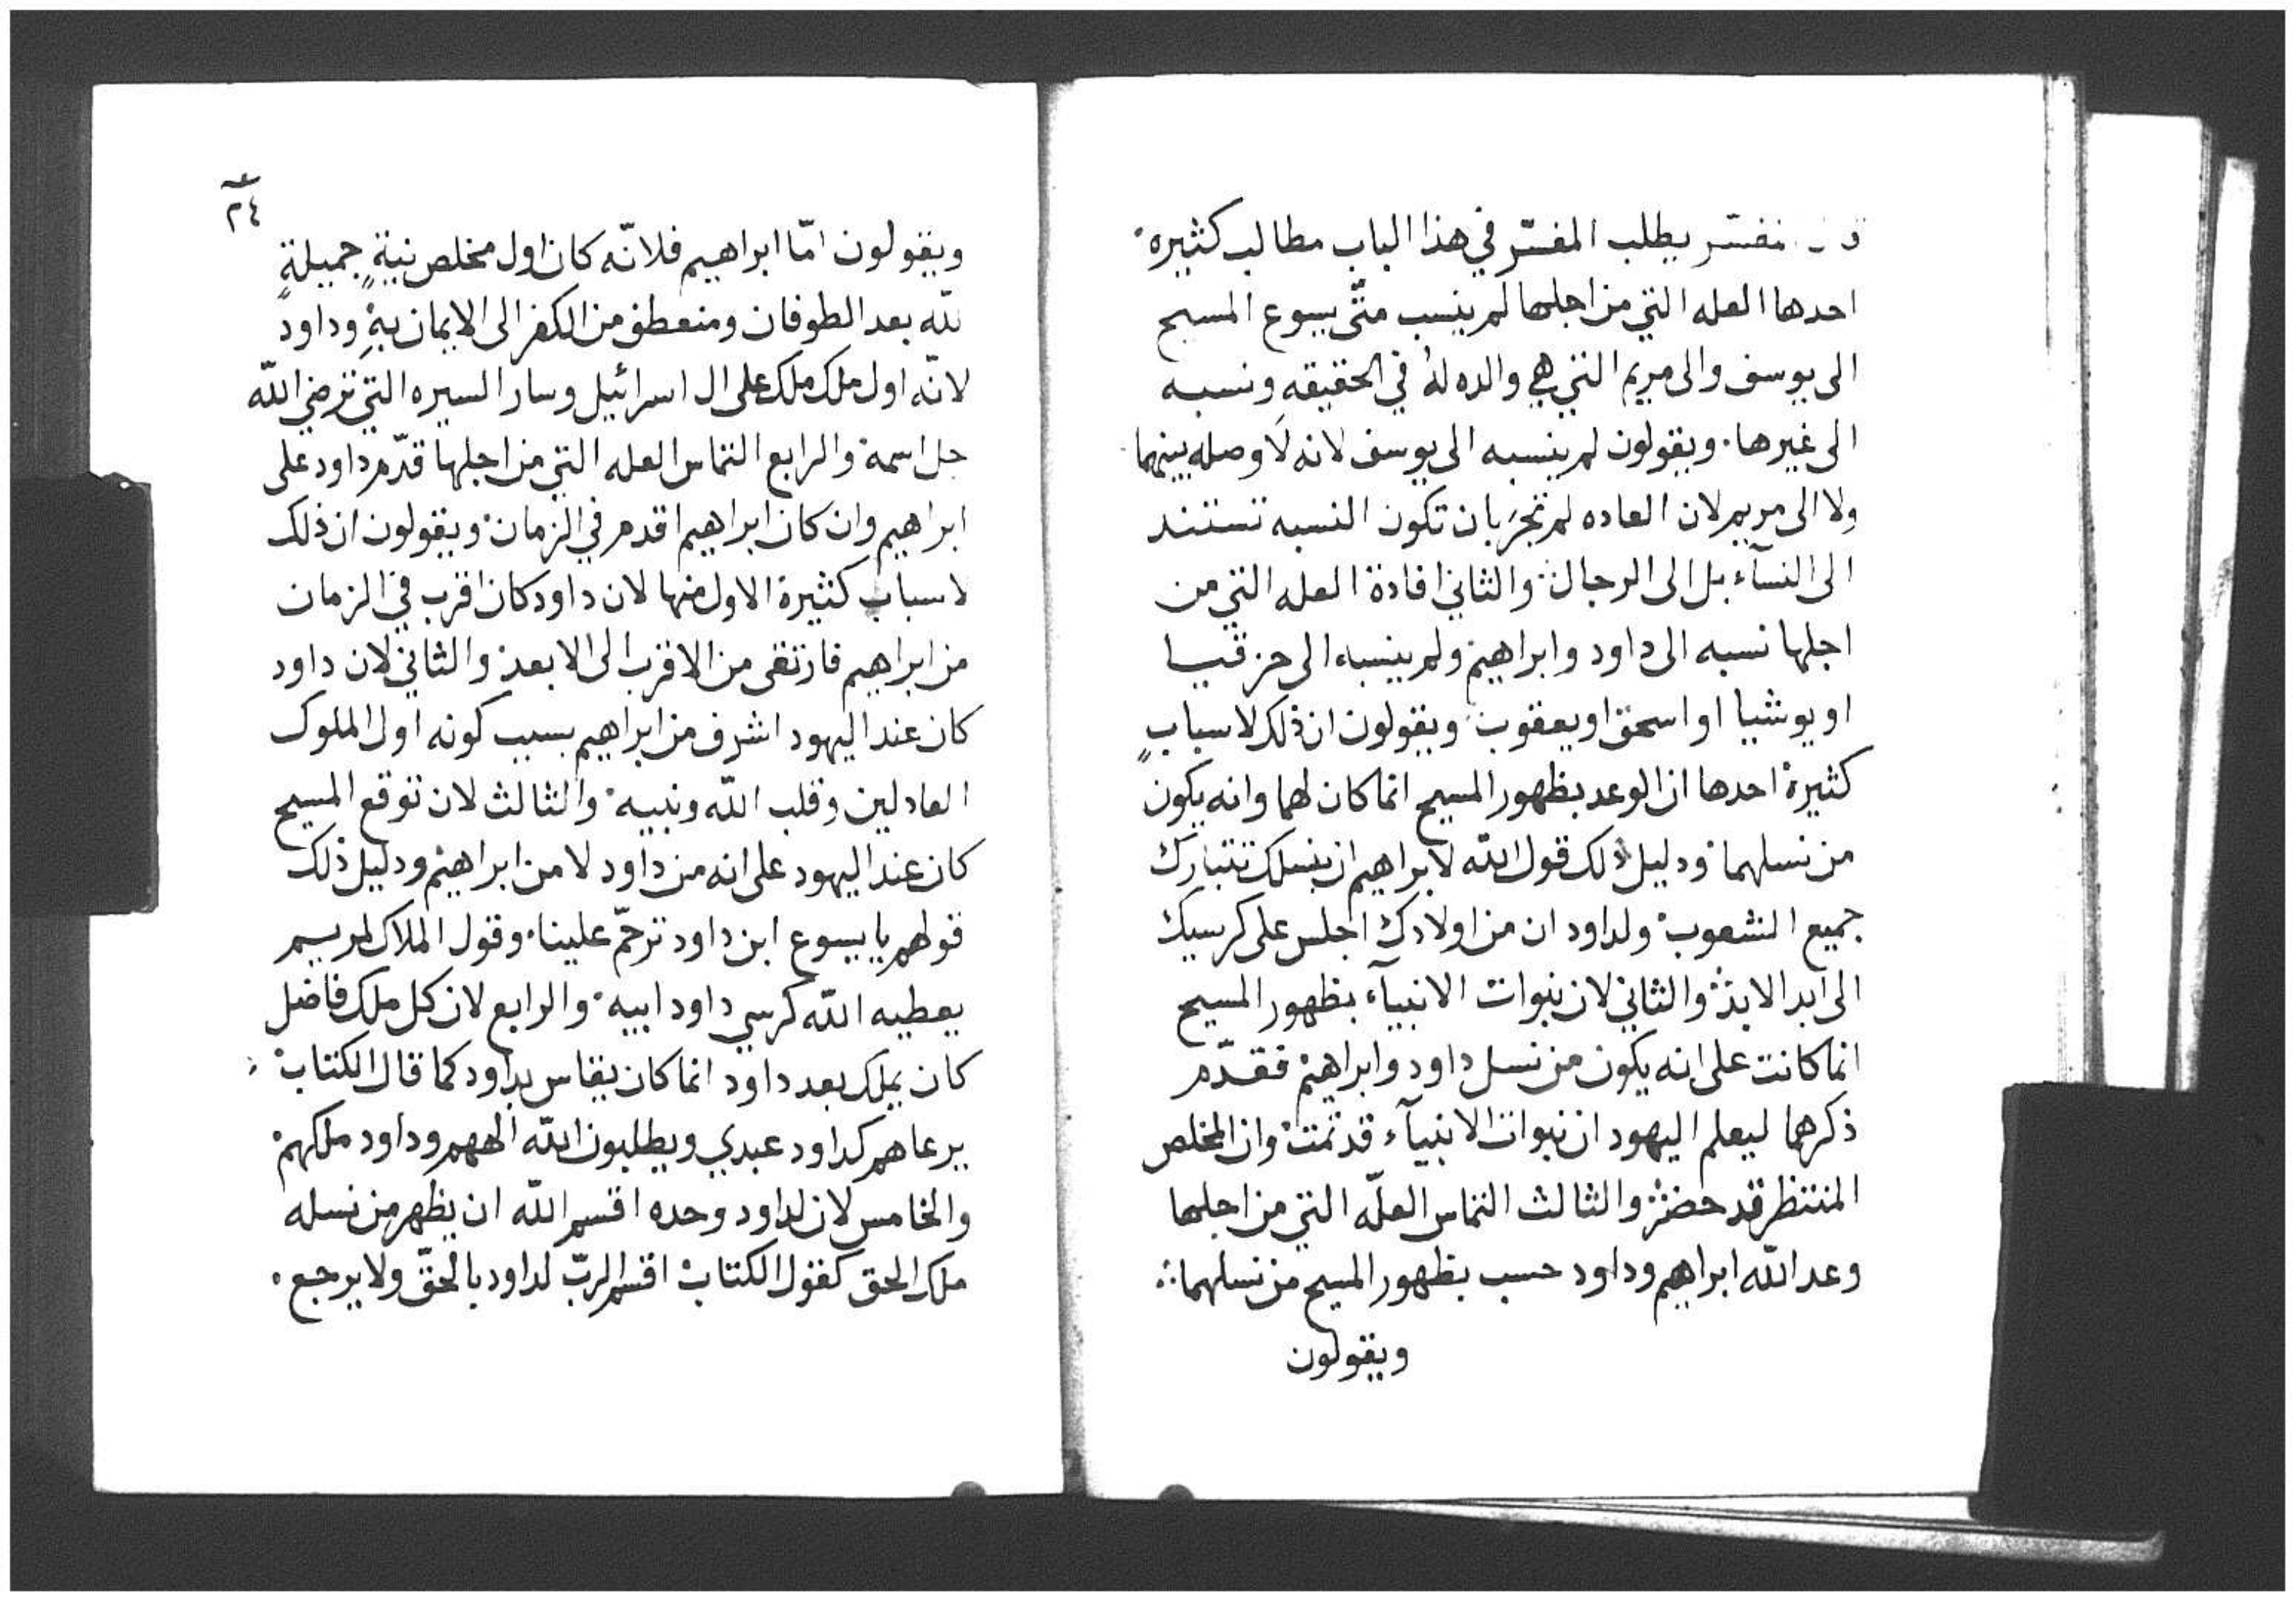 المفسّر يطلب المفسّر في هذا الباب مطالب كثيره
احدها العله التي من اجلها لم ينسب متّى يسوع المسيح
الى يوسف والى مريم التي هي والده لهُ في الحقيقهِ ونسبه
الى غيرها. ويقولون لم ينسبه الى يوسف لانه لَا وصله بينهما
ولا الى مريم لان العاده لم تجرَ بان تكون النسبه تستند
الى النسآء بل الى الرجال والثاني افادة العله التي من
اجلها نسبه الى داود وابراهيم ولم ينسبه الى حزقيا
او يوشيا او اسحق او يعقوب ويقولون ان ذلك لاسبابٍ
كثيرة احدها ان الوعد بظهور المسيح انما كان لهما وانه يكون
من نسلهما ودليل ذلك قول الله لابراهيم ان بنسلك تتبارك
جميع الشعوب ولداود ان من اولادك اجلس على كرسيك
الى ابد الابد والثاني لان نبوات الانبيآء بظهور المسيح
انما كانت على انه يكون من نسل داود وابراهيم فقدّم
ذكرهما ليعلم اليهود ان نبوات الانبيآء قد تمت وان المخلص
المنتظر قد حضر والثالث التماس العلّه التي من اجلها
وعد الله ابراهيم وداود حسب بظهور المسيح من نسلهما
ويقولون
٢٤
ويقولون امّا ابراهيم فلانّه كان اول مخلص نيةٍ جميلةٍ
لله بعد الطوفان ومنعطف من الكفر الى الايمان بهِ وداود
لانّه اول ملك ملك على ال اسرائيل وسار السيره التي ترضي الله
جل اسمه والرابع التماس العله التي من اجلها قدّم داود على
ابراهيم وان كان ابراهيم اقدم في الزمان ويقولون ان ذلك
لاسباب كثيرة الاول منها لان داود كان اقرب في الزمان
من ابراهيم فارتقى من الاقرب الى الابعد والثاني لان داود
كان عند اليهود اشرف من ابراهيم بسبب كونه اول الملوك
العادلين وقلب الله ونبيه والثالث لان توقع المسيح
كان عند اليهود على انه من داود لا من ابراهيم ودليل ذلك
قولهم يا يسوع ابن داود ترحّم علينا. وقول الملاك لمريم
يعطيه الله كرسي داود ابيه والرابع لان كل ملك فاضل
كان يملك بعد داود انما كان يقاس بداود كما قال الكتاب
يرعاهم كداود عبدي ويطلبون الله الههم وداود ملكهم
والخامس لان لداود وحده اقسم الله ان يظهر من نسله
ملك الحق كقول الكتاب اقسم الربّ لداود بالحقّ ولا يرجع